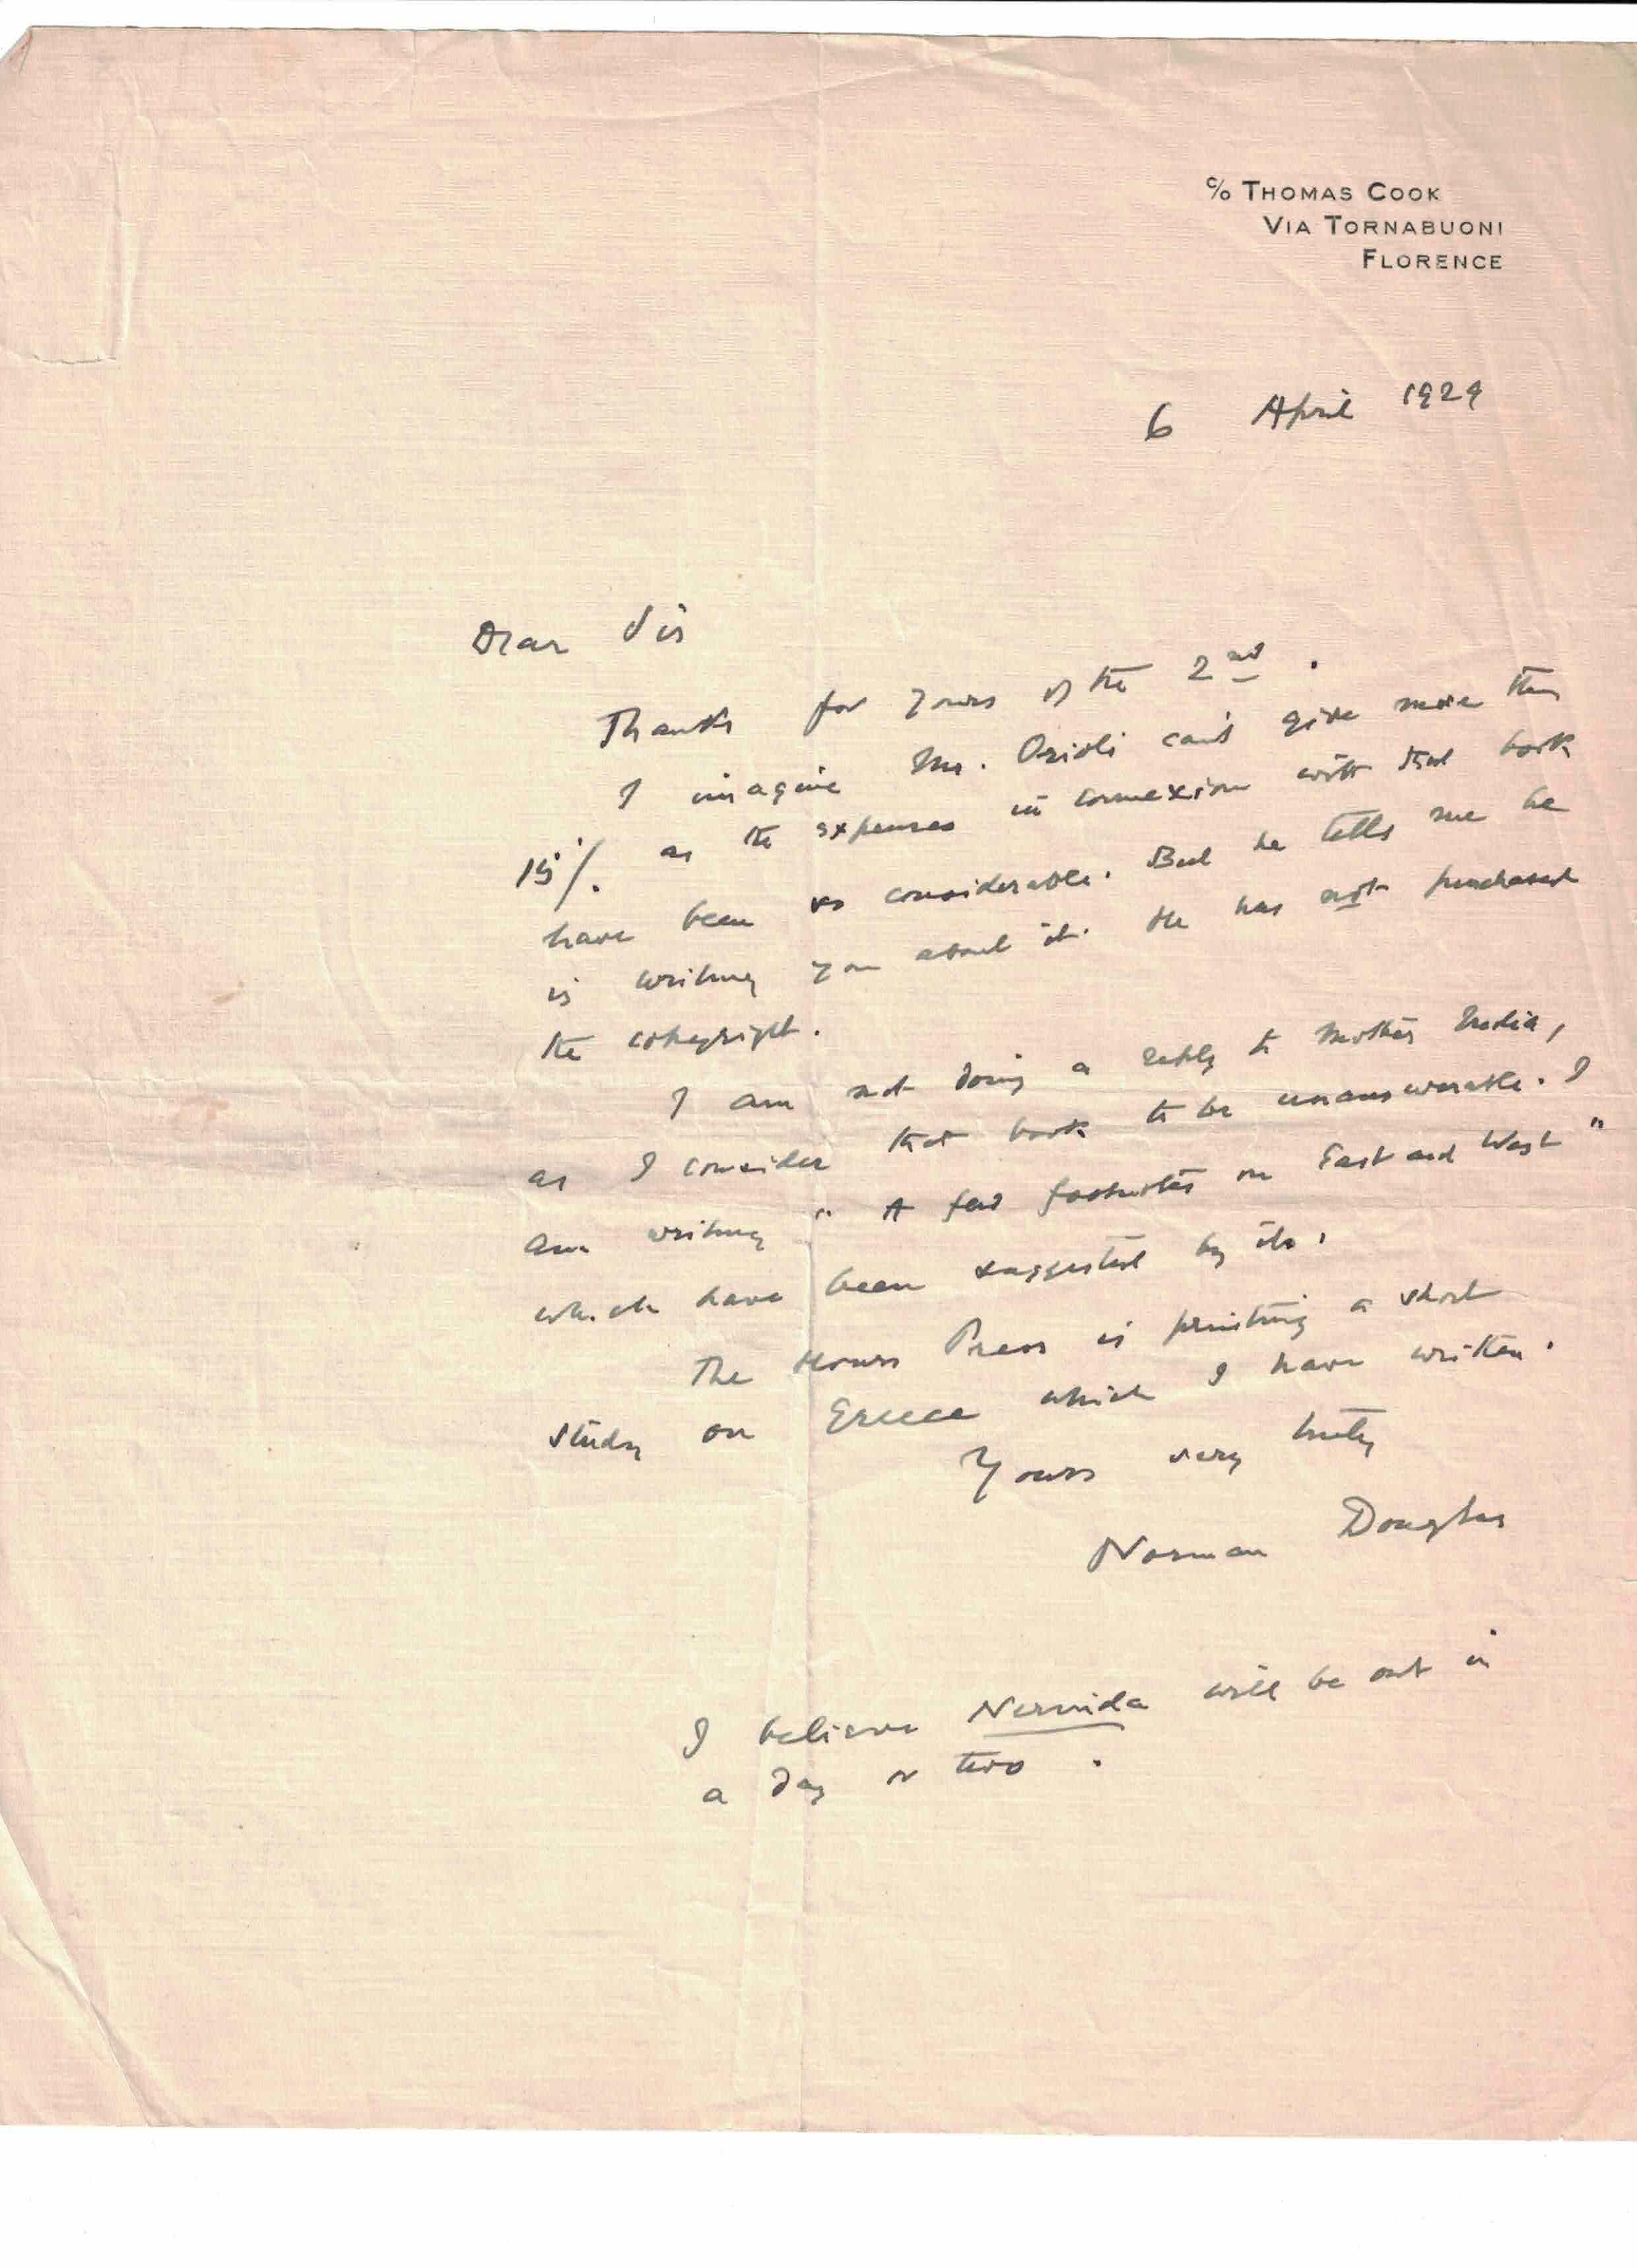 c/o THOMAS COOK
VIA TORNABUONI
FLORENCE
6 April 1929
Dear Sir
Thanks for yours of the 2nd.
I imagine Mr. Orioli can't give more than
15%. as the expenses in connexion with that book
have been so considerable. But he tells me he
is writing you about it. He has not purchased
the copyright.
I am not doing a reply to Mother India,
as I consider that book to be unanswerable. I
am writing "A few footnotes on East and West"
which have been suggested by it.
The Hours Press is printing a short
study on Greece which I have written.
Yours very truly
Norman Douglas
I believe Nerinda will be out in
a day or two.